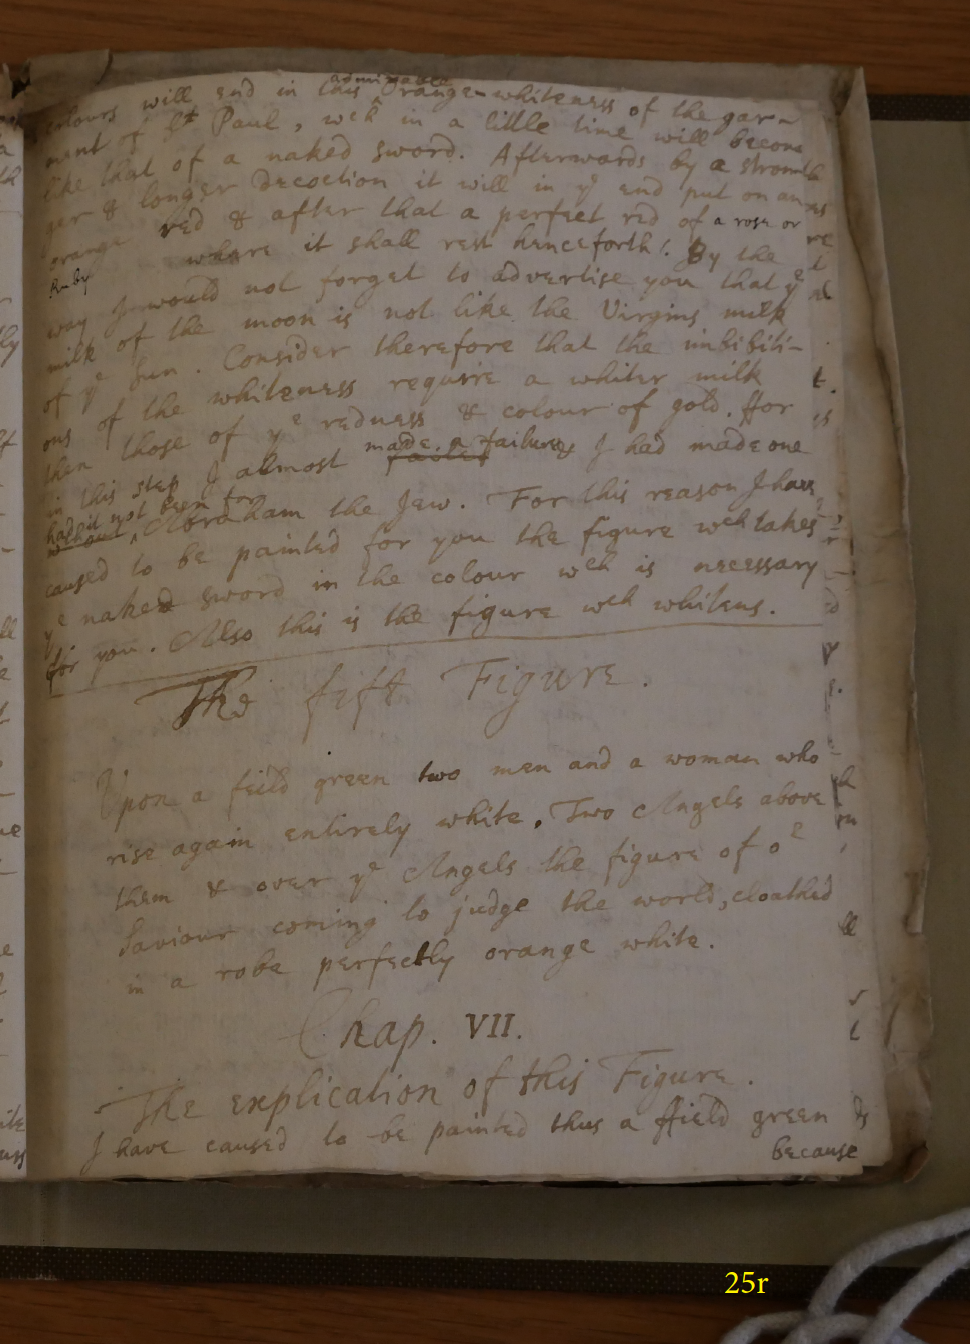 admirable
colours will end in this Orange-whiteness of the gar-
ment of St Paul, wch in a little time will become
like that of a naked sword. Afterwards by a stron-
ger & longer decoction it will in ye end put on an
orange red & after that a perfect red of a rose or
Ruby where it shall rest henceforth! By the
way I would not forget to advertise you that ye
milk of the moon is not like the Virgins milk
of ye Sun. Consider therefore that the imbibiti-
ons of the whiteness require a whiter milk
then those of ye redness & colour of gold. ffor
in this step I almost made a failure, I had made one
had it not been for
without Abraham the Jew. For this reason I have
caused to be painted for you the figure wch takes
ye naked sword in the colour wch is necessary
for you. Also this is the figure wch whitens.
The fift Figure.
Upon a feild green two men and a woman who
rise again entirely white. Two Angels above
them & over ye Angels the figure of oe
Saviour coming to judge the world, cloathed
in a robe perfectly orange white.
Chap. VII.
The explication of this Figure.
I have caused to be painted thus a ffield green
because
25r